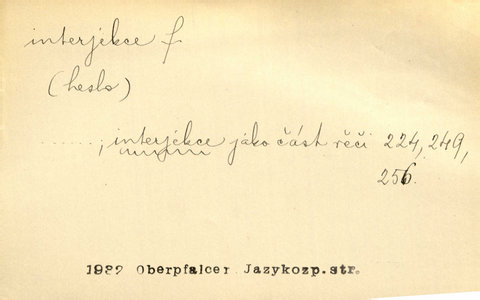 interjekce f
(heslo)
......; interjékce jáko část řěči 224, 249,
256.
1932 Oberpfalcer Jazykozp.str.